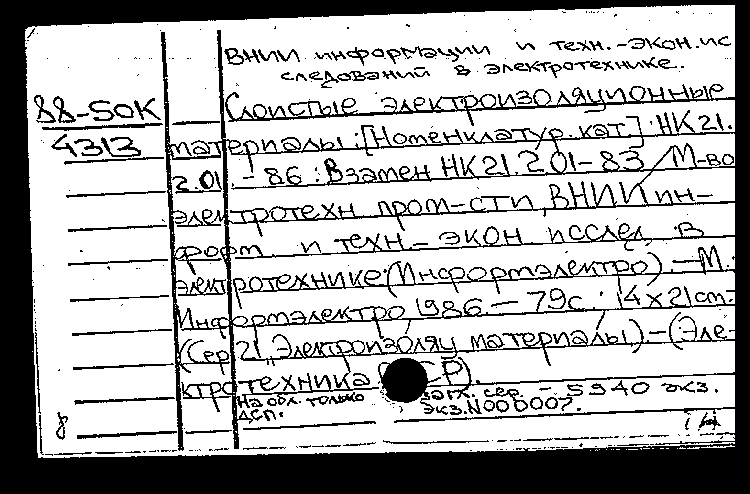 ВНИИ информации и техн.-экон.ис
следований в электротехнике.
88-50К
Слоистые электроизоляционные
4313
материалы : [Номенклатур. кат] : НК 21.
2.01. - 86 : Взамен НК 21.2 01-83 / М-во
электротехн пром-сти, ВНИИ ин-
форм. и техн.- экон исслед. в
электротехнике (Информэлектро). — М.:
Информэлектро, 1986. — 79с.; 14 х 21 см.-
(Сер 21 „Электроизоляц материалы). - (Эле-
ктротехника СР).
На обл. только
загл. сер. - 5940 экз.
ДСП.
Экз. N000007.
8